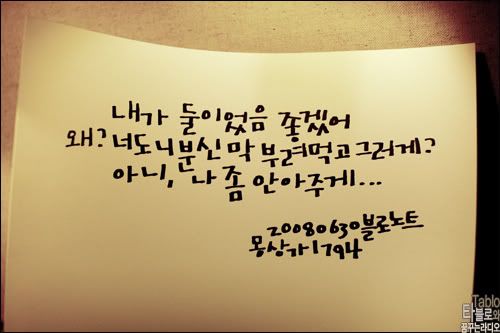 내가 둘이었음 좋겠어
왜? 너도 니 분신 막 부려먹고 그러게?
아니, 나 좀 안아주게...
20080630 블로노트
몽상가1794
Tablo
타블로와
꿈꾸는라디오